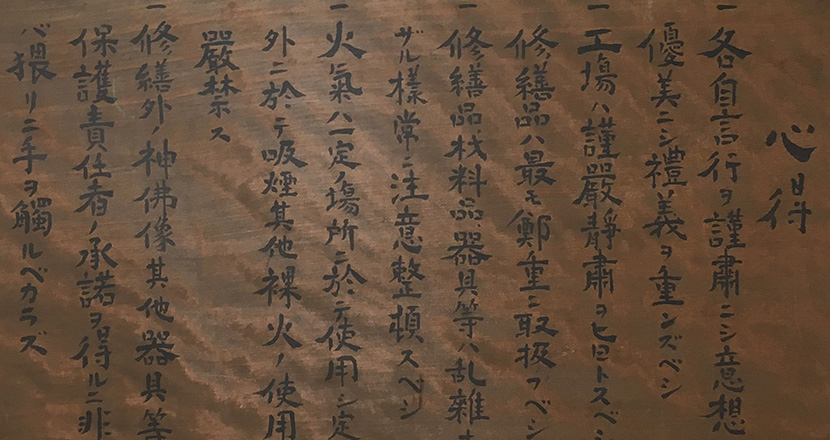 心得
一各自言行ヲ謹肅ニシ意想
優美ニシ禮義ヲ重ンズベシ
一工場ハ謹嚴靜肅ヲ旨トスベシ
一修繕品ハ最モ鄭重ニ取扱フベシ
一修繕品材料品器具等ハ乱雜
ザル樣常ニ注意整頓スベシ
一火氣ハ一定ノ場所ニ於テ使用シ定
外ニ於テ吸煙其他裸火ノ使用
嚴禁ス
一修繕外ノ神佛像其他器具等
保護責任者ノ承諾ヲ得ルニ非
バ猥リニ手ヲ觸ルベカラズ